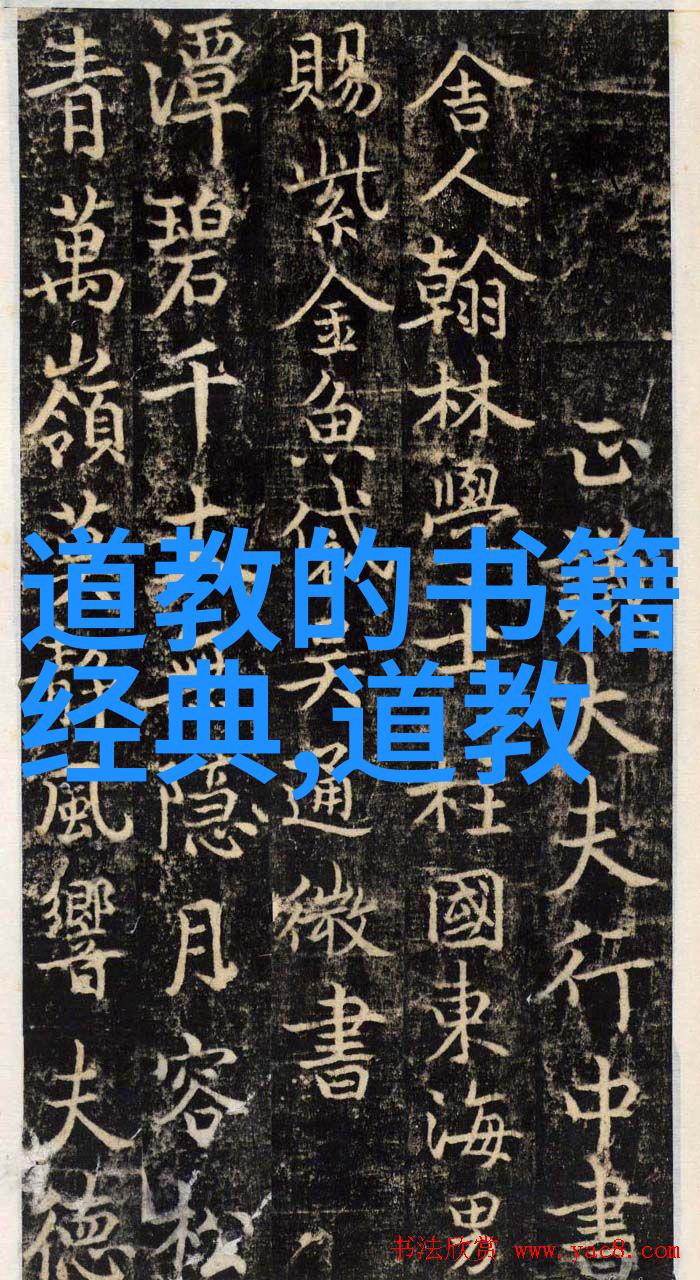 正大夫行中書
舍人翰林學士柱國東海男
賜紫金魚袋吴通微書
潭碧千隱月容松
青萬嶺風響夫德
道教的书籍
经典,道教
书法欣赏 www.yac8.com